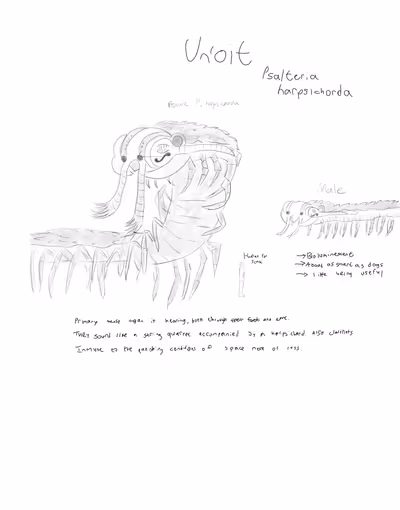 Un'oit
Psalteria
harpsichorda
Female P. harpsichorda
Male
Human for
Scale
→ Bioluminescent
→ About as smart as dogs
→ like being useful
Primary sense organ is hearing, both through their feet and ears.
They sound like a string quartet accompanied by a harpsichord and clarinets
Immune to the punishing conditions of space more or less.